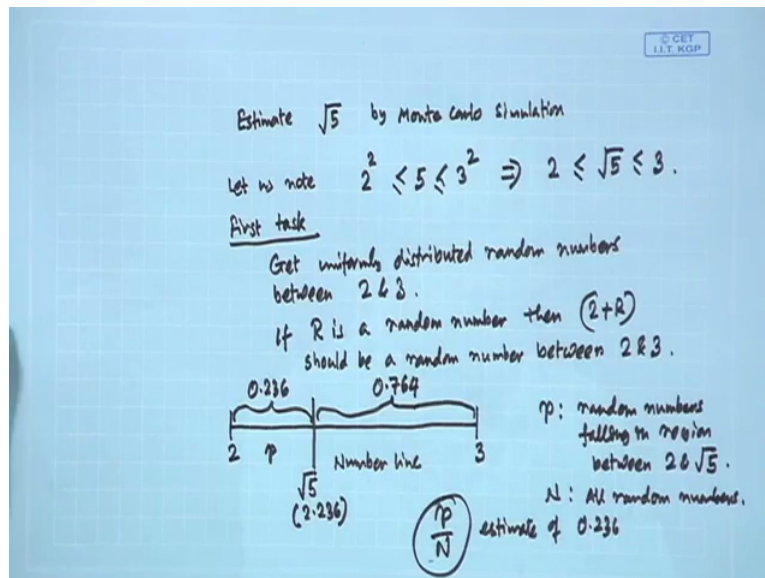 © CET
I.I.T. KGP
Estimate √5 by Monte Carlo Simulation
Let us note 2² ≤ 5 ≤ 3² ⇒ 2 ≤ √5 ≤ 3.
First task
Get uniformly distributed random numbers
between 2 & 3.
If R is a random number then (2+R)
should be a random number between 2 & 3.
0.236 0.764
2 p Number line 3
√5
(2.236)
p: random numbers
falling in region
between 2 & √5.
N: All random numbers.
p/N estimate of 0.236